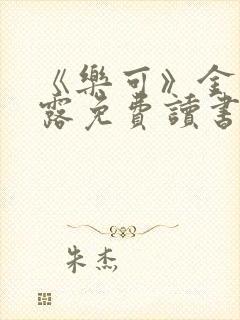 《樂可》金
露免費讀書
朱杰